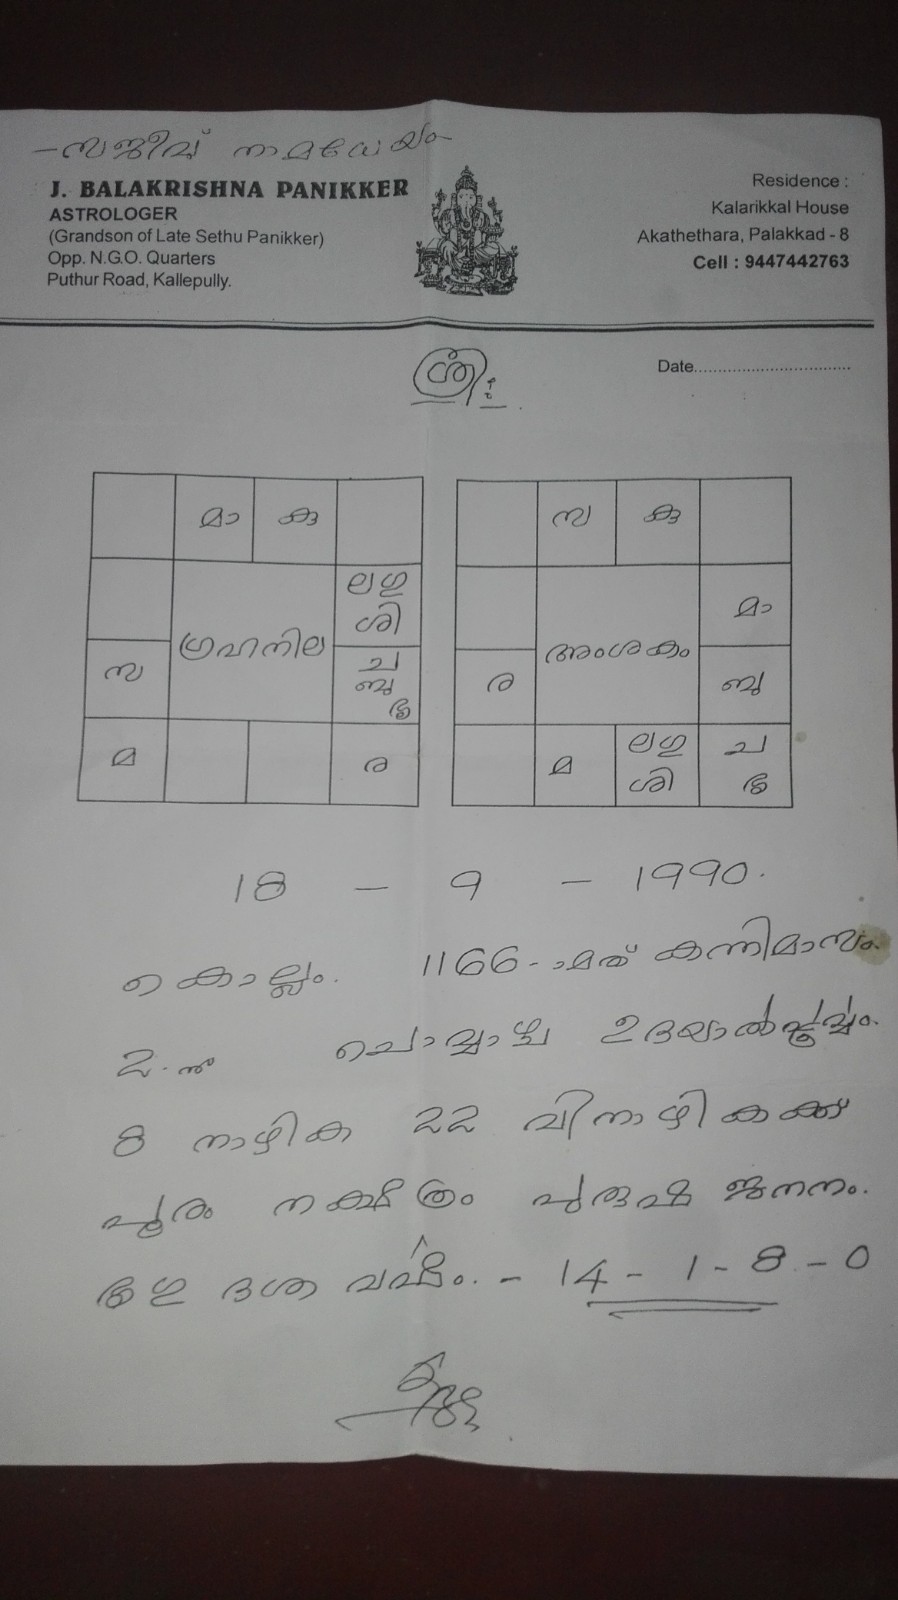 സജീവ് നാമധേയം
J. BALAKRISHNA PANIKKER
ASTROLOGER
(Grandson of Late Sethu Panikker)
Opp. N.G.O. Quarters
Puthur Road, Kallepully.
Residence :
Kalarikkal House
Akathethara, Palakkad - 8
Cell : 9447442763
ശ്രീ:
Date...................................
മാ കു
ലഗു
ശി
ഗ്രഹനില
സ
ച
ബു
ഭൃ
മ ര
സ കു
മാ
അംശകം
ര ബു
മ
ലഗു
ശി
ച
ഭൃ
18 - 9 - 1990.
കൊല്ലം. 1166-ാമത് കന്നിമാസം.
2-ന് ചൊവ്വാഴ്ച ഉദയാൽപൂർവ്വം.
8 നാഴിക 22 വിനാഴികക്ക്
പൂരം നക്ഷത്രം പുരുഷ ജനനം.
ഭൃഗു ദശ വർഷം. - 14 - 1 - 8 - 0